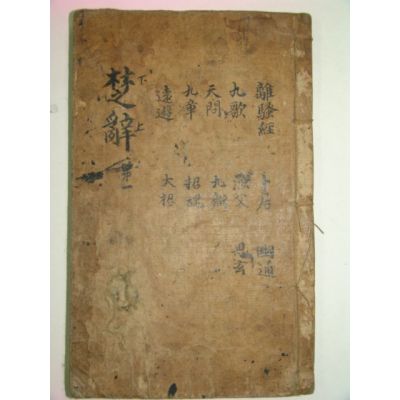 離騷經 卜居 幽通
九歌 漁父 思玄
天問 九辯
九章 招魂
遠遊 大招
楚辭 上 下 第一